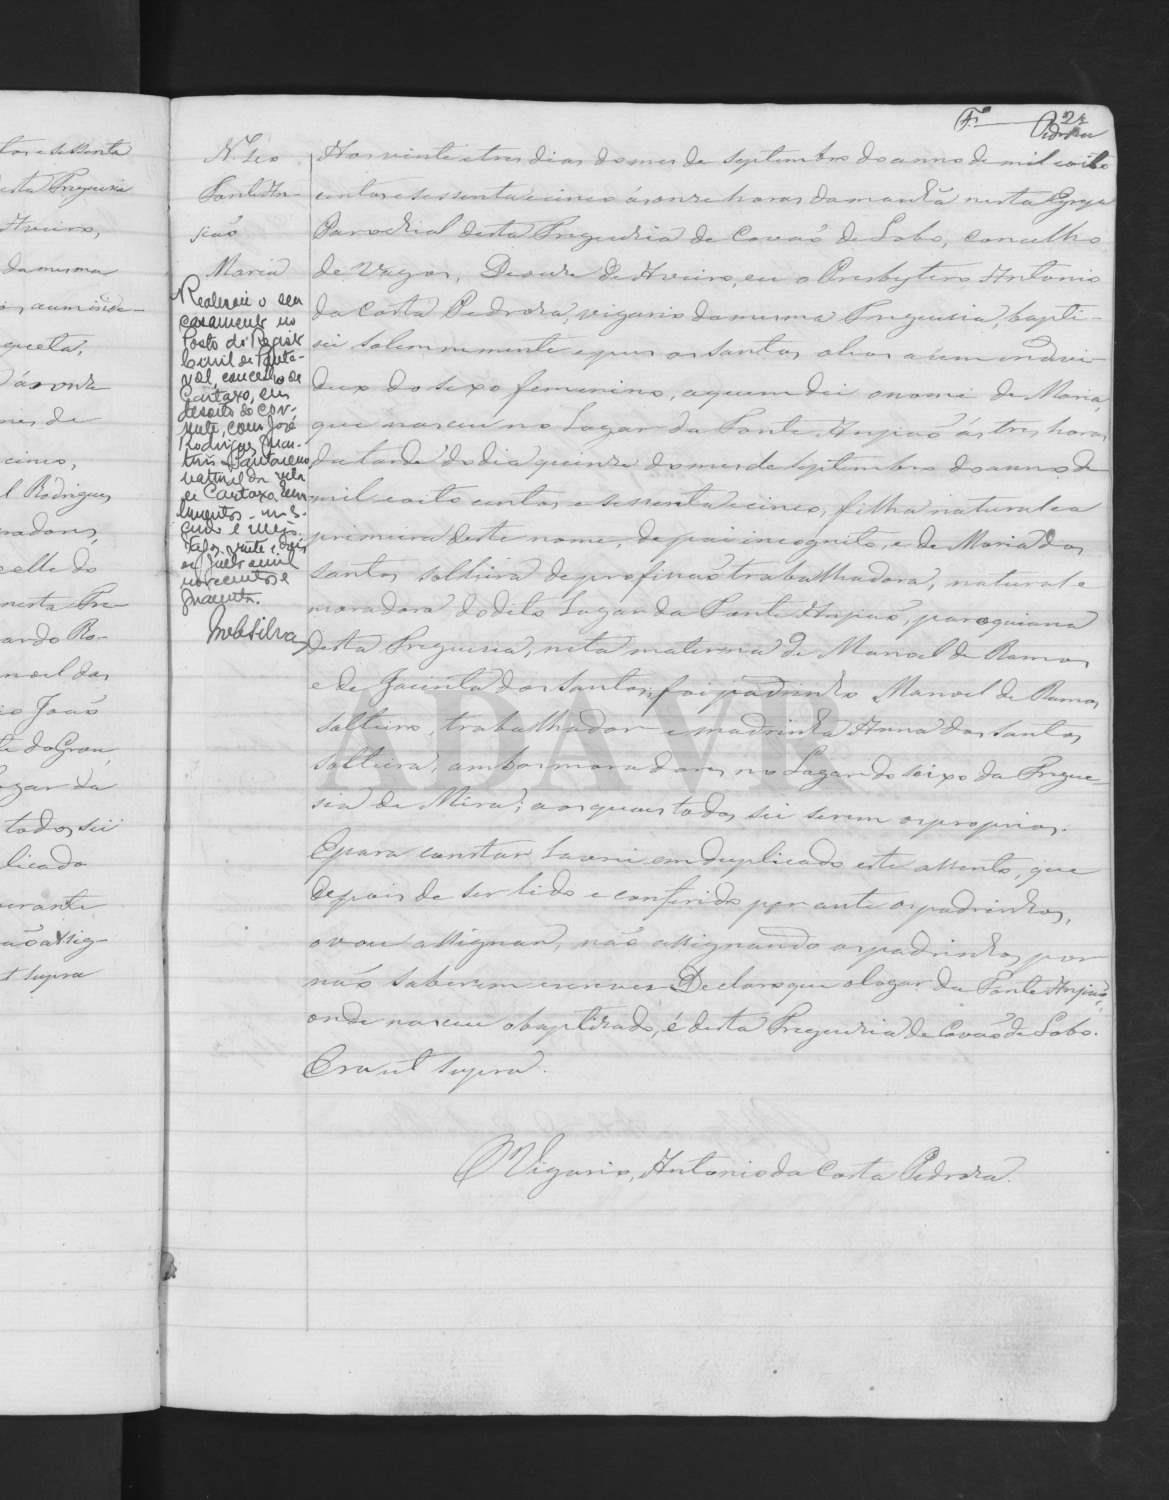 tos e sessenta
desta Freguesia
Aveiro,
da mesma
queta,
ás onze
mes de
cinco,
l Rodrigues
radores,
elle do
nesta Fre-
ardo Ro-
noel dos
João
te do Grou,
ogar da
todos sei
licado
perante
não assig-
t supra
F. 22
Pedroza
N. 60
Ponte An-
jiaõ
Maria
Realizou o seu
casamento no
Posto do Regist
Civil de Ponte-
vel, concelho de
Cartaxo, em
desoito do cor-
rente, com José
Rodrigues Mar-
tins Santareno,
natural da vila
de Cartaxo.
vinte e dois
mil
novecentos e
quarenta.
Aos vinte e tres dias do mes de septembro do anno de mil e oito
centos e sessenta e cinco ás onze horas da manhã nesta Egreja
Parochial desta Freguezia de Covaõ de Lobo, concelho
de Vagos, Diocese de Aveiro, eu o Presbytero Antonio
da Costa Pedroza, vigario da mesma Freguesia, bapti-
sei solemnemente e puz os santos oleos a um indivi-
duo do sexo femenino, a quem dei o nome de Maria,
que nasceu no Logar da Ponte Anjiaõ ás tres horas
da tarde do dia quinze do mes de septembro do anno de
mil e oito centos e sessenta e cinco, filha natural e a
primeira deste nome, de pai incognito, e de Maria dos
santos solteira de profissaõ trabalhadora, natural e
moradora do dito Lugar da Ponte Anjiaõ, paroquiana
desta Freguesia, neta materna de Manoel de Ramos
e de Jacinta dos Santos; foi padrinho Manoel de Ramos
solteiro, trabalhador e madrinha Anna dos santos
solteira, ambos moradores no Lugar do seixo da Fregue-
sia de Mira; aos quaes todos sei serem os proprios.
E para constar lavrei em duplicado este assento, que
depois de ser lido e conferido perante os padrinhos,
o vou assignar, não assignando os padrinhos por
naõ saberem escrever. Declaro que o logar da Ponte Anjiaõ,
onde nasceu o baptizado, é desta Freguezia de Covaõ de Lobo.
Era ut supra.
O Vigario, Antonio da Costa Pedroza.
ADAVR